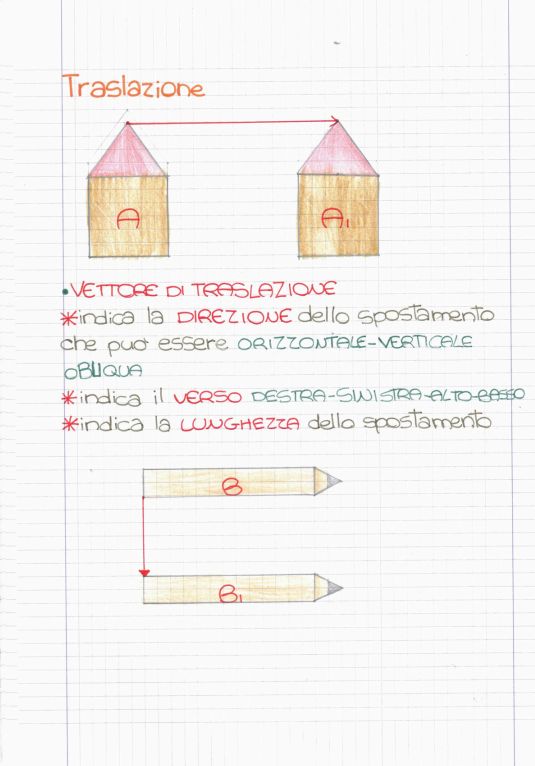 Traslazione
A A₁
• VETTORE DI TRASLAZIONE
*indica la DIREZIONE dello spostamento
che può essere ORIZZONTALE-VERTICALE
OBLIQUA
*indica il VERSO DESTRA-SINISTRA-ALTO-BASSO
*indica la LUNGHEZZA dello spostamento
B
B₁